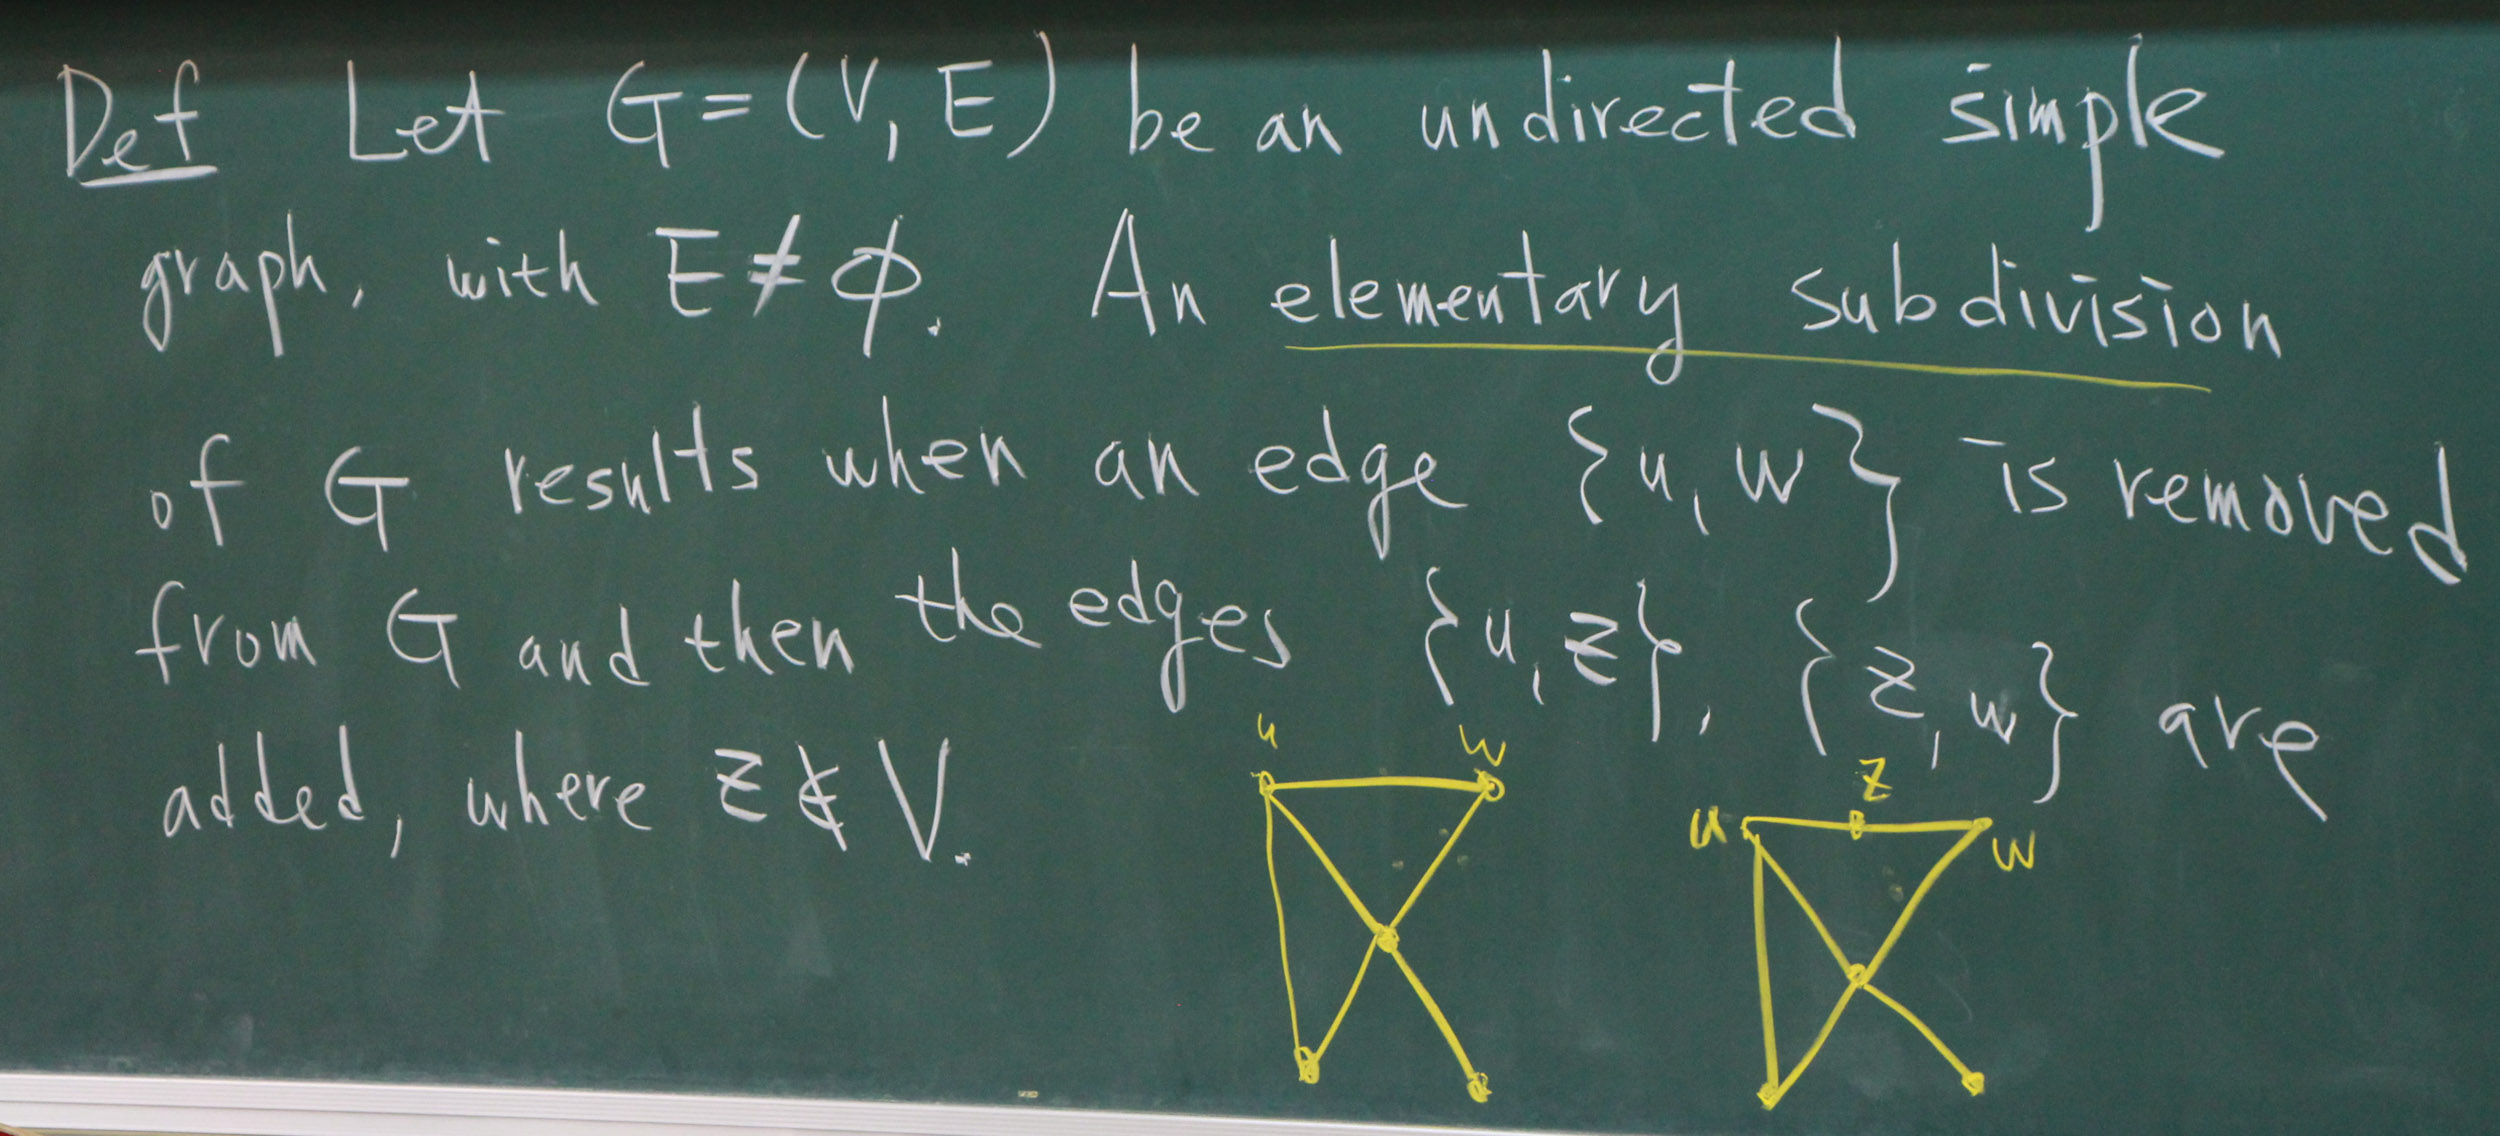 Def Let G = (V, E) be an undirected simple
graph, with E ≠ ϕ. An elementary subdivision
of G results when an edge {u, w} is removed
from G and then the edges {u, z}, {z, w} are
added, where z ∉ V.
u w
z
u w